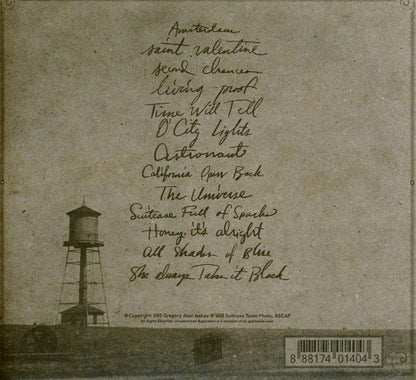 Amsterdam
saint valentine
second chances
living proof
Time Will Tell
O' City Lights
Astronaut
California Open Back
The Universe
Suitcase Full of Sparks
Honey, it's alright
All Shades of Blue
She always Takes it Black
©Copyright 2013 Gregory Alan Isakov ℗ 2013 Suitcase Town Music, ASCAP
All Rights Reserved. Unauthorized duplication is a violation of all applicable laws.
8 88174 01404 3